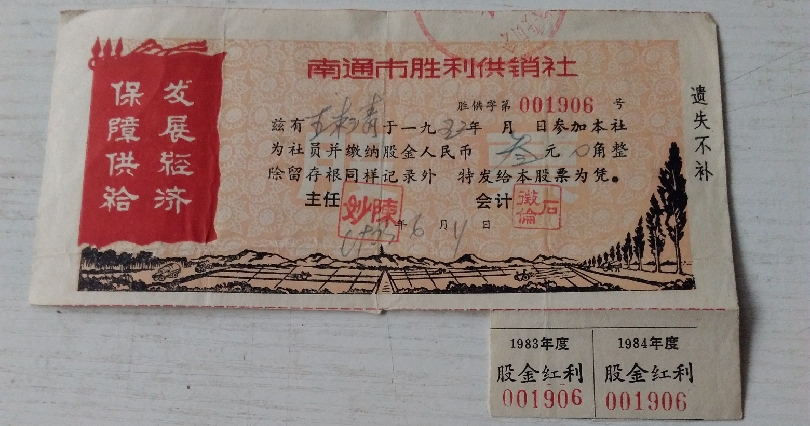 发展经济
保障供给
南通市胜利供销社
胜供字第 001906 号
兹有 于一九 年 月 日参加本社
为社员并缴纳股金人民币 叁 元 0 角整
除留存根同样记录外 特发给本股票为凭。
主任 陳 会计 石
年 6 月 日
遗失不补
1983年度
股金红利
001906
1984年度
股金红利
001906